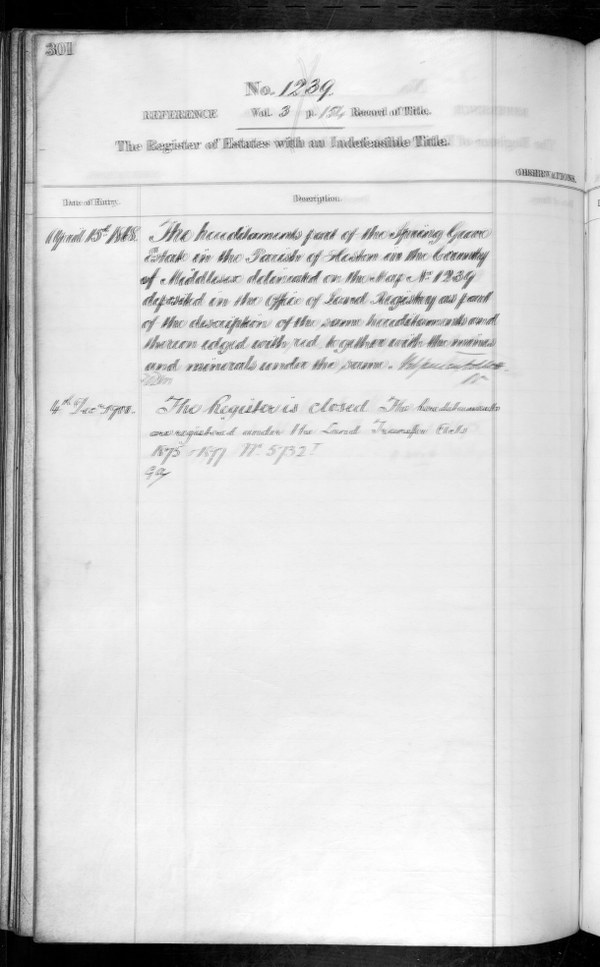 301
No. 1239.
REFERENCE Vol. 3 p. Record of Title.
The Register of Estates with an Indefeasible Title.
OBSERVATIONS.
Date of Entry. Description.
April 15th 1868. The hereditaments part of the Spring Grove
Estate in the Parish of Heston in the County
of Middlesex delineated on the Map No 1239
deposited in the Office of Land Registry as part
of the description of the same hereditaments and
thereon edged with red together with the mines
and minerals under the same
4th Decr The Register is closed The hereditaments
are registered under the Land Transfer Acts
1875 & 1897 No 5732